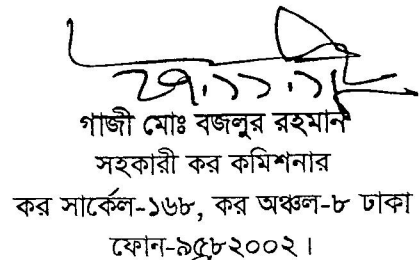 গাজী মোঃ বজলুর রহমান
সহকারী কর কমিশনার
কর সার্কেল-১৬৮, কর অঞ্চল-৮ ঢাকা
ফোন-৯৫৮২০০২।